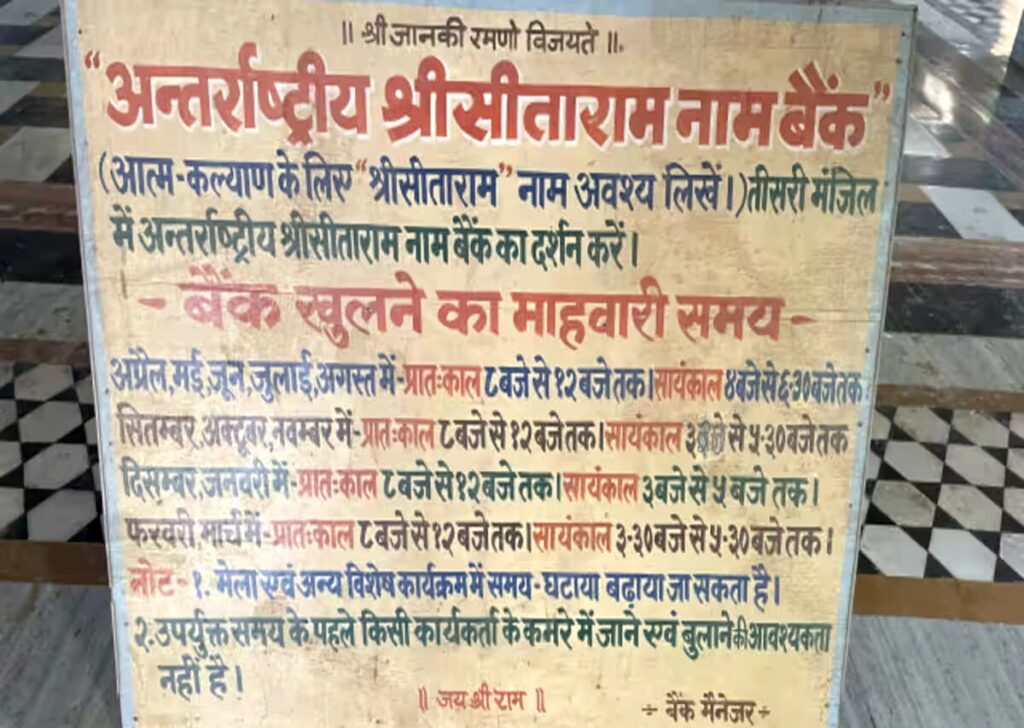 ॥ श्री जानकी रमणो विजयते ॥.
“अन्तर्राष्ट्रीय श्रीसीताराम नाम बैंक”
(आत्म-कल्याण के लिए “श्रीसीताराम” नाम अवश्य लिखें।) तीसरी मंजिल
में अन्तर्राष्ट्रीय श्रीसीताराम नाम बैंक का दर्शन करें।
- बैंक खुलने का माहवारी समय -
अप्रैल,मई,जून,जुलाई,अगस्त में-प्रातःकाल ८ बजे से १२ बजे तक। सायंकाल ४ बजे से ६·३० बजे तक
सितम्बर,अक्टूबर,नवम्बर में-प्रातःकाल ८ बजे से १२ बजे तक। सायंकाल ३ बजे से ५·३० बजे तक
दिसम्बर,जनवरी में-प्रातःकाल ८ बजे से १२ बजे तक। सायंकाल ३ बजे से ५ बजे तक।
फरवरी,मार्च में-प्रातःकाल ८ बजे से १२ बजे तक। सायंकाल ३·३० बजे से ५·३० बजे तक।
नोट - १. मेला एवं अन्य विशेष कार्यक्रम में समय-घटाया बढ़ाया जा सकता है।
२. उपर्युक्त समय के पहले किसी कार्यकर्ता के कमरे में जाने एवं बुलाने की आवश्यकता
नहीं है।
॥ जय श्री राम ॥
÷ बैंक मैनेजर ÷